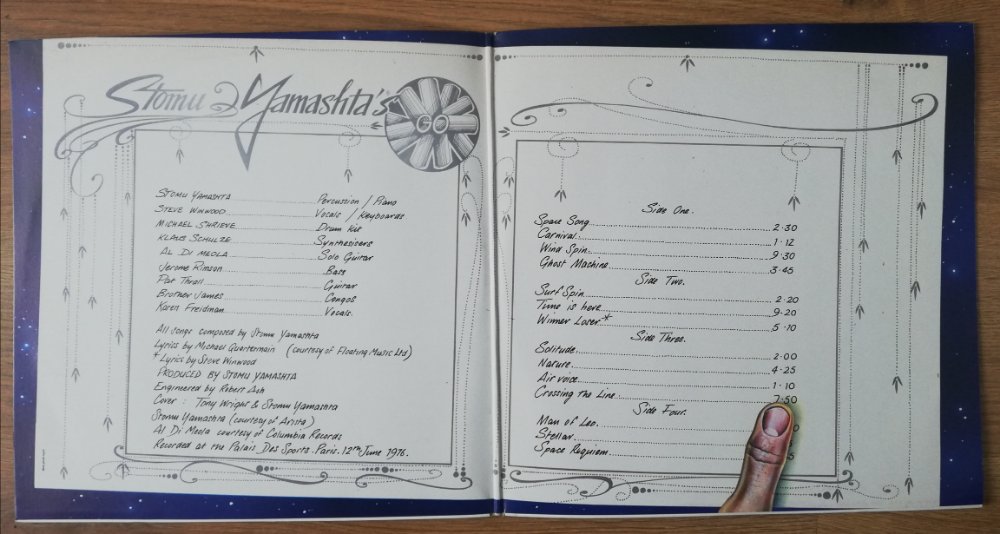 Stomu Yamashta's
GO
Stomu Yamashta Percussion / Piano
Steve Winwood Vocals / Keyboards
Michael Shrieve Drum Kit
Klaus Schulze Synthesisers
Al Di Meola Solo Guitar
Jerome Rimson Bass
Pat Thrall Guitar
Brother James Congos
Karen Freidman Vocals.
All songs composed by Stomu Yamashta
Lyrics by Michael Quartermain (courtesy of Floating Music Ltd)
* Lyrics by Steve Winwood
PRODUCED BY STOMU YAMASHTA
Engineered by Robert Ash
Cover : Tony Wright & Stomu Yamashta
Stomu Yamashta (courtesy of Arista)
Al Di Meola courtesy of Columbia Records
Recorded at the Palais Des Sports. Paris. 12TH June 1976.
Side One.
Space Song 2·30
Carnival 1·12
Wind Spin 9·30
Ghost Machine 3·45
Side Two.
Surf Spin 2·20
Time is here 9·20
Winner Loser * 5·10
Side Three.
Solitude 2·00
Nature 4·25
Air voice 1·10
Crossing the Line 7·50
Side Four.
Man of Leo
Stellar
Space Requiem